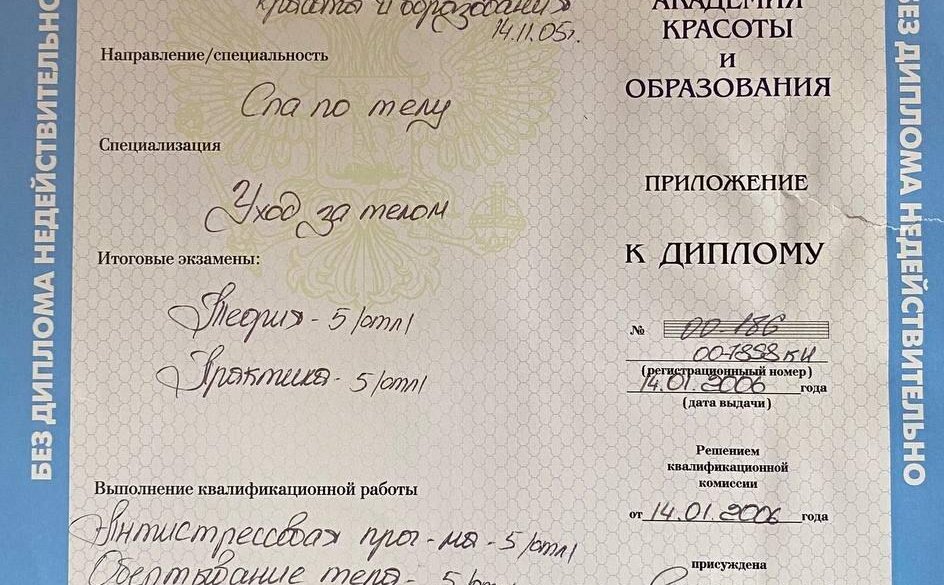 красоты и образования»
14.11.05г.
Направление/специальность
Спа по телу
Специализация
Уход за телом
Итоговые экзамены:
Теория - 5 /отл/
Практика - 5 /отл/
Выполнение квалификационной работы
Антистрессовая прог-ма - 5 /отл/
Обертывание тела - 5 /отл/
АКАДЕМИЯ
КРАСОТЫ
И
ОБРАЗОВАНИЯ
ПРИЛОЖЕНИЕ
К ДИПЛОМУ
№ 00-186
00-1898 КИ
(регистрационный номер)
14.01.2006 года
(дата выдачи)
Решением
квалификационной
комиссии
от 14.01.2006 года
присуждена
БЕЗ ДИПЛОМА НЕДЕЙСТВИТЕЛЬНО
БЕЗ ДИПЛОМА НЕДЕЙСТВИТЕЛЬНО